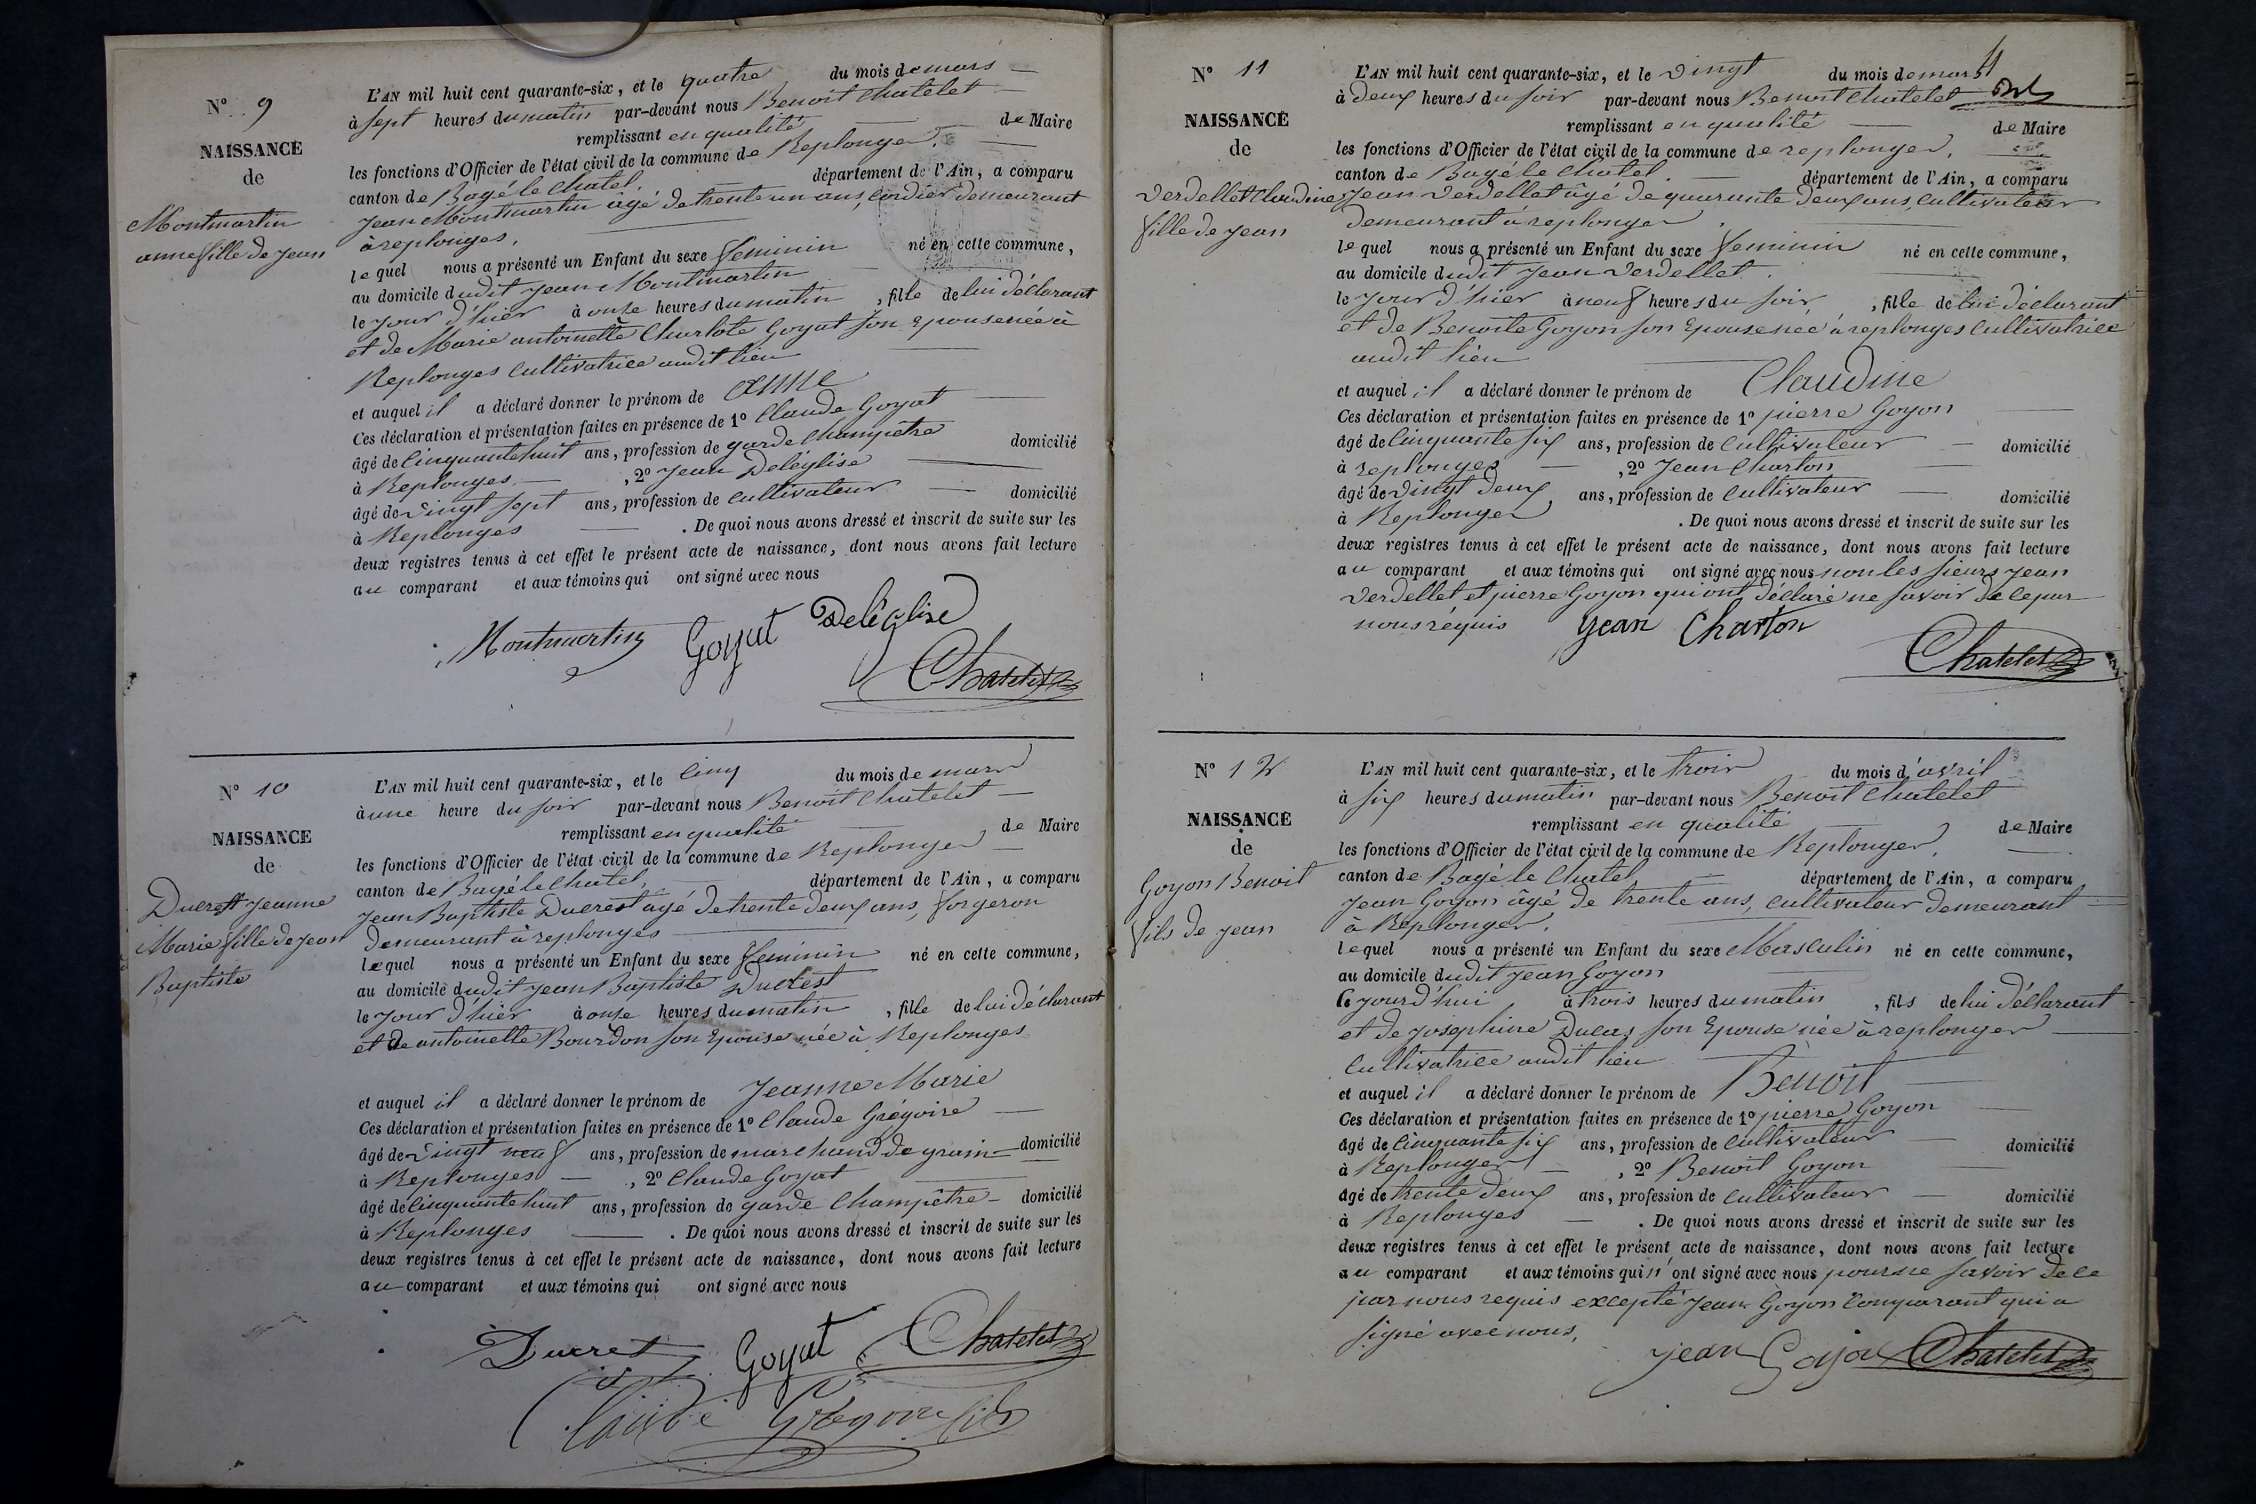 N° 9
NAISSANCE
de
Montmartin
anne fille de Jean
L'AN mil huit cent quarante-six, et le quatre du mois de mars
à sept heures du matin par-devant nous Benoit Chatelet
remplissant en qualité de Maire
les fonctions d'Officier de l'état civil de la commune de Replonges.
canton de Bagé le Chatel. département de l'Ain, a comparu
Jean Montmartin âgé de trente un ans, Cordier demeurant
à replonges.
lequel nous a présenté un Enfant du sexe feminin né en cette commune,
au domicile dudit Jean Montmartin
le jour d'hier à onze heures du matin, fille de lui déclarant
et de Marie antoinette Charlote Goyat son Epouse née à
Replonges Cultivatrice audit lieu
et auquel il a déclaré donner le prénom de anne
Ces déclaration et présentation faites en présence de 1° Claude Goyat
âgé de Cinquante huit ans, profession de garde Champêtre domicilié
à Replonges, 2° Jean Deléglise
âgé de vingt sept ans, profession de Cultivateur domicilié
à Replonges . De quoi nous avons dressé et inscrit de suite sur les
deux registres tenus à cet effet le présent acte de naissance, dont nous avons fait lecture
au comparant et aux témoins qui ont signé avec nous
Montmartin Goyat Deléglise
Chatelet
N° 10
NAISSANCE
de
Ducrest Jeanne
Marie fille de Jean
Baptiste
L'AN mil huit cent quarante-six, et le Cinq du mois de mars
à une heure du soir par-devant nous Benoit Chatelet
remplissant en qualité de Maire
les fonctions d'Officier de l'état civil de la commune de Replonges
canton de Bagé le Chatel. département de l'Ain, a comparu
Jean Baptiste Ducrest agé de trente deux ans, forgeron
demeurant à replonges
lequel nous a présenté un Enfant du sexe feminin né en cette commune,
au domicile dudit Jean Baptiste Ducrest
le jour d'hier à onze heures du matin, fille de lui déclarant
et de antoinette Bourdon son Epouse née à Replonges
et auquel il a déclaré donner le prénom de Jeanne Marie
Ces déclaration et présentation faites en présence de 1° Claude Grégoire
âgé de vingt neuf ans, profession de marchand de grain domicilié
à Replonges, 2° Claude Goyat
âgé de Cinquante huit ans, profession de garde Champêtre domicilié
à Replonges . De quoi nous avons dressé et inscrit de suite sur les
deux registres tenus à cet effet le présent acte de naissance, dont nous avons fait lecture
au comparant et aux témoins qui ont signé avec nous
Ducret Goyat Chatelet
Claude Grégoire fils
N° 11
NAISSANCE
de
Verdellet Claudine
fille de Jean
L'AN mil huit cent quarante-six, et le vingt du mois de mars
à deux heures du soir par-devant nous Benoit Chatelet
remplissant en qualité de Maire
les fonctions d'Officier de l'état civil de la commune de replonges.
canton de Bagé le Chatel. département de l'Ain, a comparu
Jean Verdellet âgé de quarante deux ans, Cultivateur
demeurant à replonges
lequel nous a présenté un Enfant du sexe feminin né en cette commune,
au domicile dudit Jean Verdellet.
le jour d'hier à neuf heures du soir, fille de lui déclarant
et de Benoite Goyon son Epouse née à replonges Cultivatrice
audit lieu
et auquel il a déclaré donner le prénom de Claudine
Ces déclaration et présentation faites en présence de 1° pierre Goyon
âgé de Cinquante six ans, profession de Cultivateur domicilié
à replonges, 2° Jean Charton
âgé de vingt deux ans, profession de Cultivateur domicilié
à Replonges . De quoi nous avons dressé et inscrit de suite sur les
deux registres tenus à cet effet le présent acte de naissance, dont nous avons fait lecture
au comparant et aux témoins qui ont signé avec nous non les sieurs Jean
Verdellet et pierre Goyon qui ont déclaré ne savoir de ce par
nous réquis Jean Charton
Chatelet
N° 12
NAISSANCE
de
Goyon Benoit
fils de Jean
L'AN mil huit cent quarante-six, et le trois du mois d'avril
à six heures du matin par-devant nous Benoit Chatelet
remplissant en qualité de Maire
les fonctions d'Officier de l'état civil de la commune de Replonges.
canton de Bagé le Chatel département de l'Ain, a comparu
Jean Goyon âgé de trente ans, Cultivateur demeurant
à Replonges.
lequel nous a présenté un Enfant du sexe Masculin né en cette commune,
au domicile dudit Jean Goyon
Ce jourd'hui, à trois heures du matin, fils de lui déclarant
et de Josephine Ducas son Epouse née à replonges
Cultivatrice audit lieu
et auquel il a déclaré donner le prénom de Benoit
Ces déclaration et présentation faites en présence de 1° pierre Goyon
âgé de Cinquante six ans, profession de Cultivateur domicilié
à Replonges, 2° Benoit Goyon
âgé de trente deux ans, profession de Cultivateur domicilié
à Replonges . De quoi nous avons dressé et inscrit de suite sur les
deux registres tenus à cet effet le présent acte de naissance, dont nous avons fait lecture
au comparant et aux témoins qui n'ont signé avec nous pour ne savoir de ce
par nous requis excepté Jean Goyon Comparant qui a
signé avec nous.
Jean Goyon Chatelet